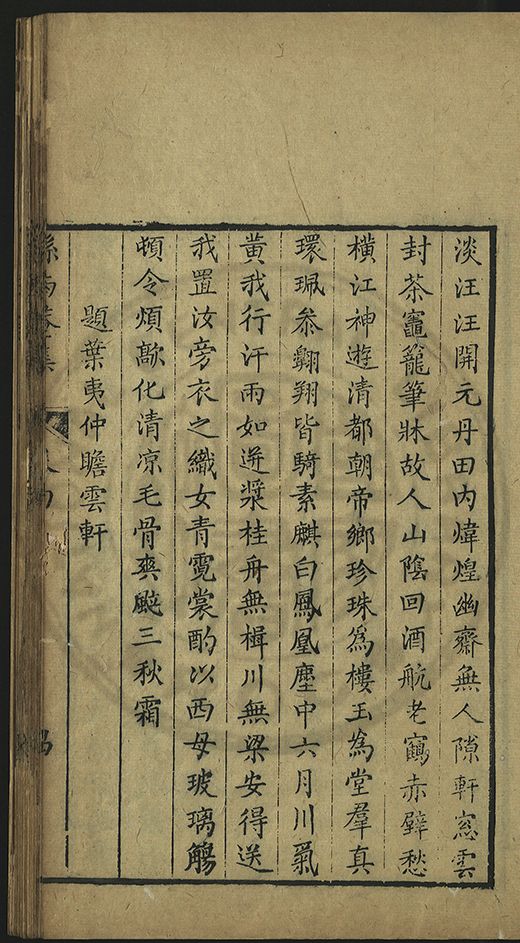 淡汪汪開元丹田内煒煌幽齋無人隙軒窓雲
封茶竈籠筆牀故人山陰回酒航老鶴赤壁愁
橫江神遊清都朝帝鄉珍珠爲樓玉爲堂羣真
環珮叅翺翔皆騎素麒白鳳凰塵中六月川氣
黄我行汗雨如迸漿桂舟無楫川無梁安得送
我置汝旁衣之織女青霓裳酌以西母玻璃觴
頓令煩歊化清凉毛骨爽颷三秋霜
題葉夷仲瞻雲軒